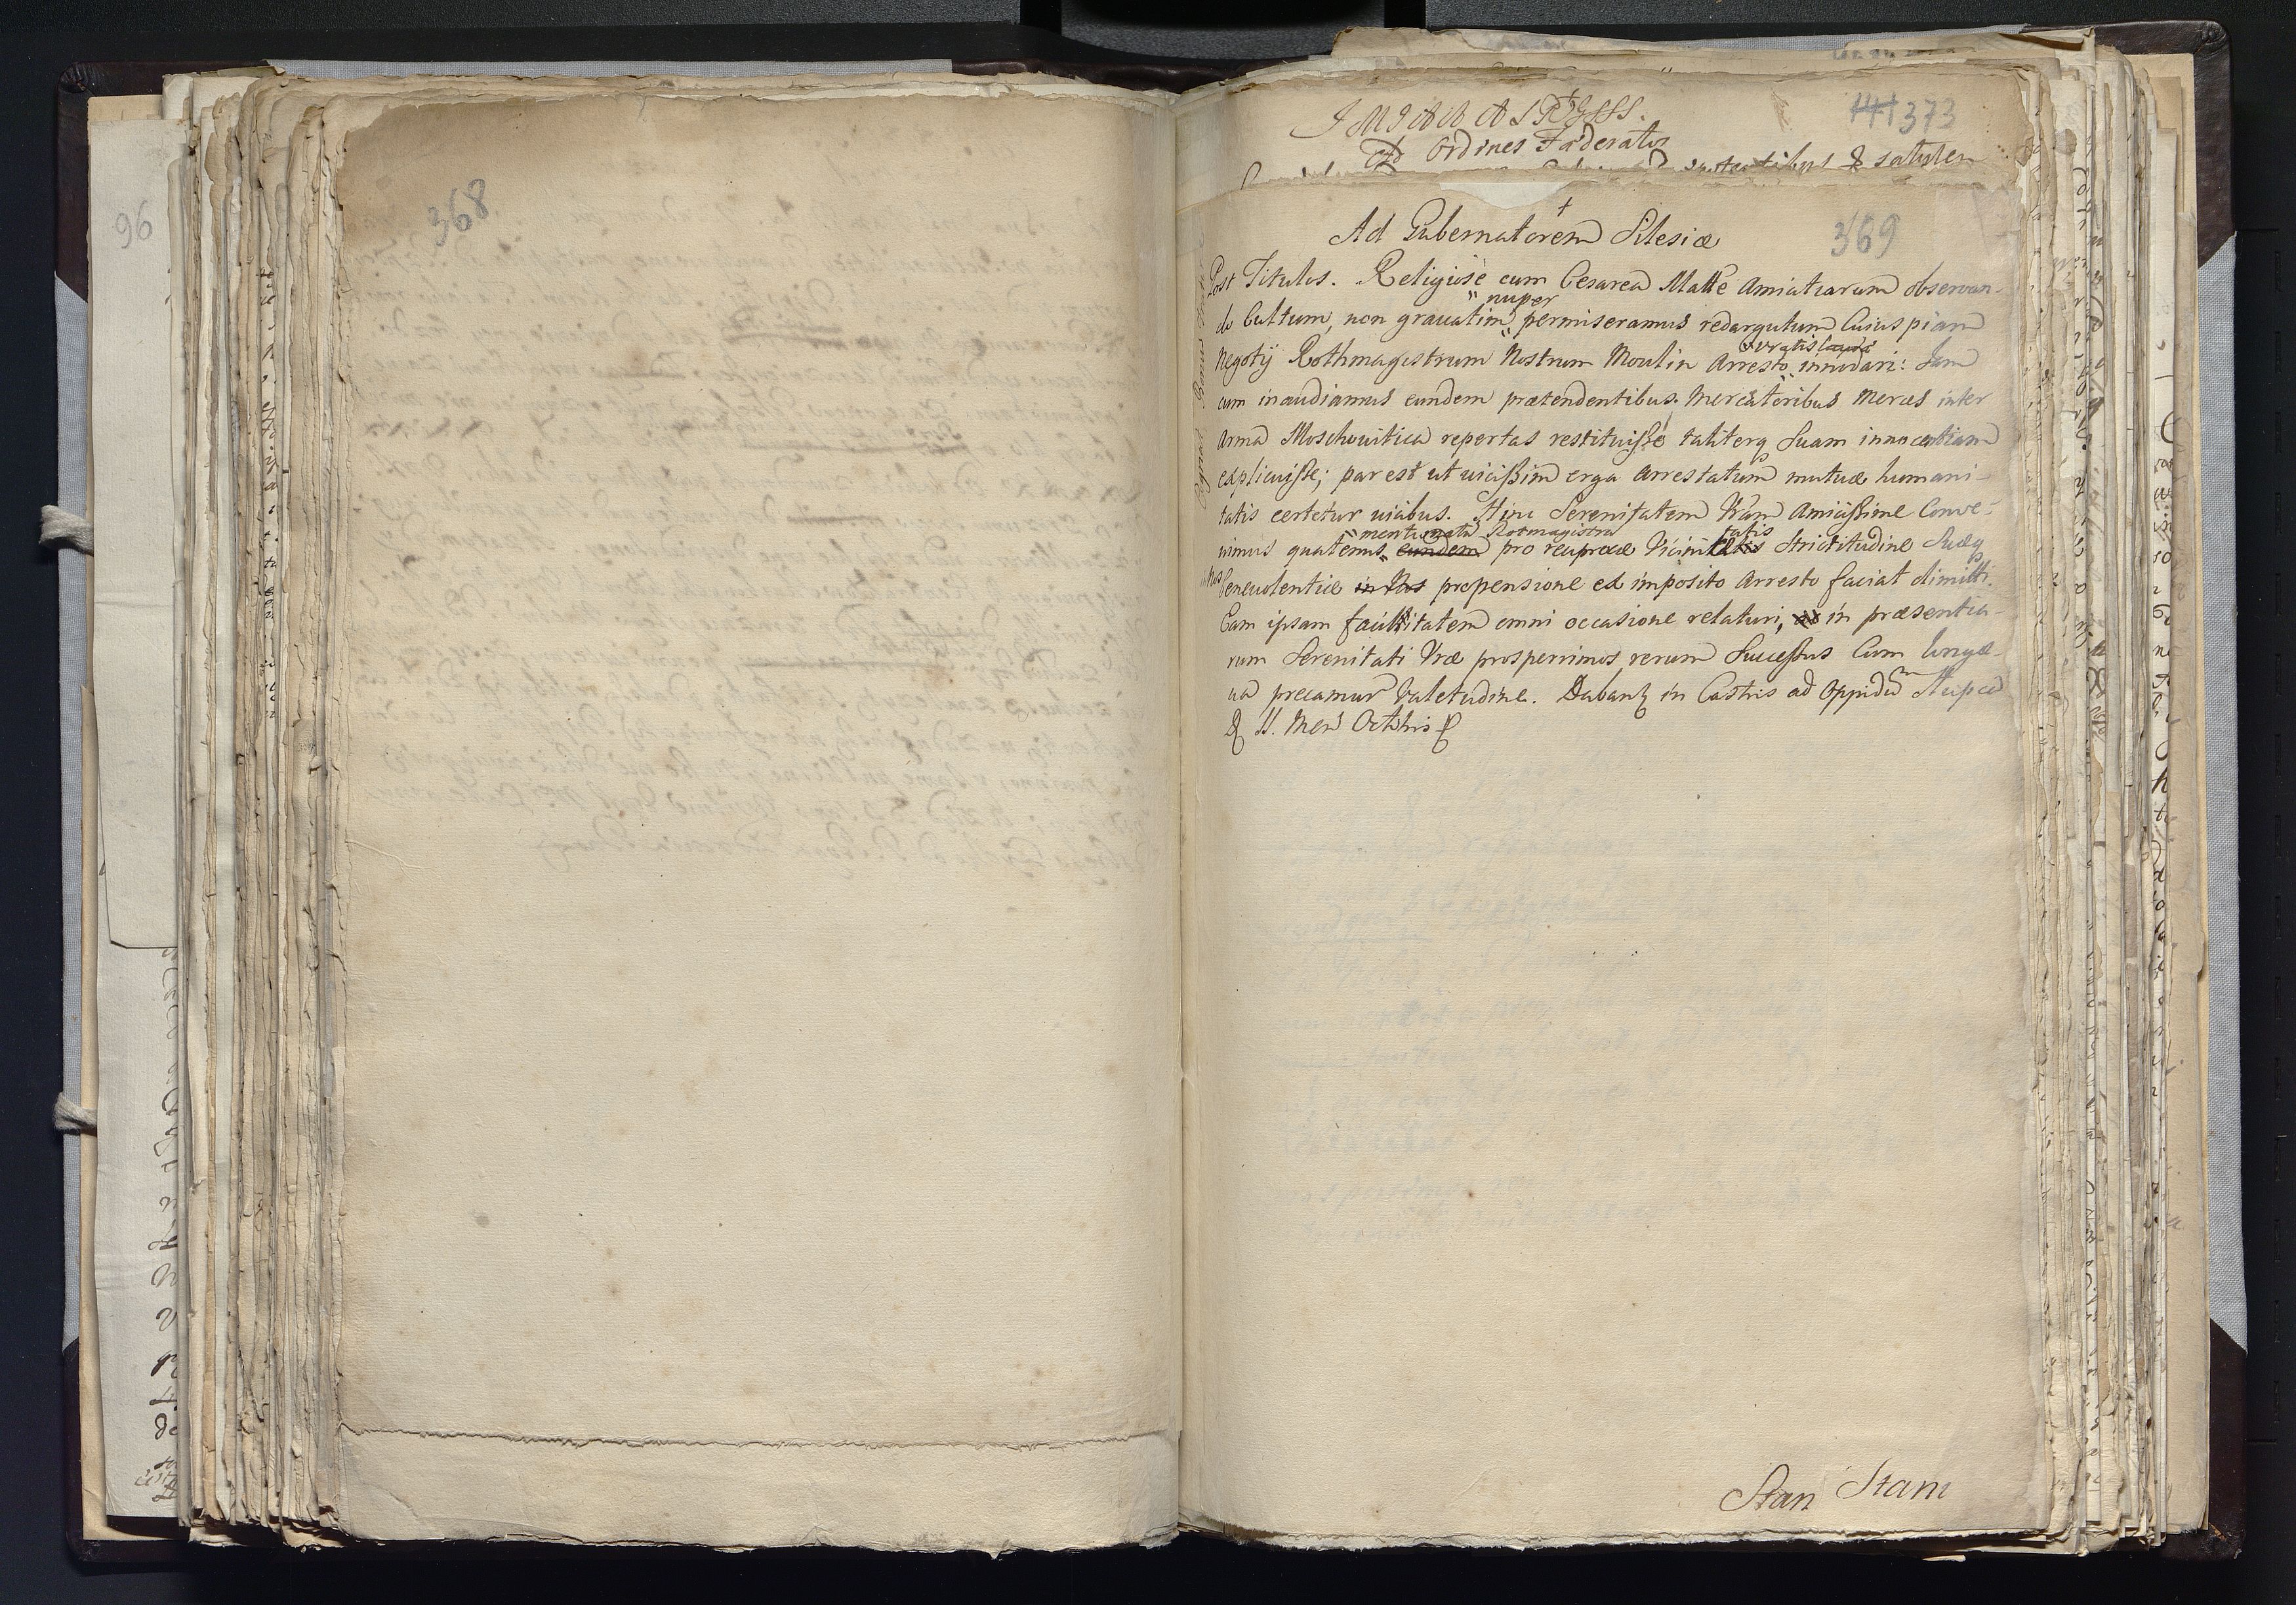 96
368
141 373
Ad Ordines Faderatos
369
Ad Gubernatorem Silesiæ
Post Titulos. Religiose cum Cesarea Matte Amicitiarum observan-
nuper
do Cultum, non grauatim permiseramus redargutum Cuiuspiam
Vratislauiæ
Negotij Rothmagistrum Nostrum Moulin Arresto innodari: Jam
cum inaudiamus eundem prætendentibus Mercatoribus Merces inter
Arma Moschouitica repertas restituisse taliterq suam innocentiam
explicuisse; par est ut uicissim erga Arrestatum mutuæ humani-
tatis certetur uicibus. Hinc Serenitatem Vram Amicissime Conve-
mentionatū Rotmagistrū tatis
nimus quatenus eundem pro reciprocæ Vicinitatis Strictitudine Suæq
in Nos
Beneuolentiæ in Nos propensione ex imposito Arresto faciat dimitti.
Eam ipsam facilitatem omni occasione relaturi, in præsentia-
rum Serenitati Vræ prosperrimos rerum Successus Cum longæ-
ua precamur Valetudine. Dabant in Castris ad Oppidum
11. Mens Octobris
Stan Stani